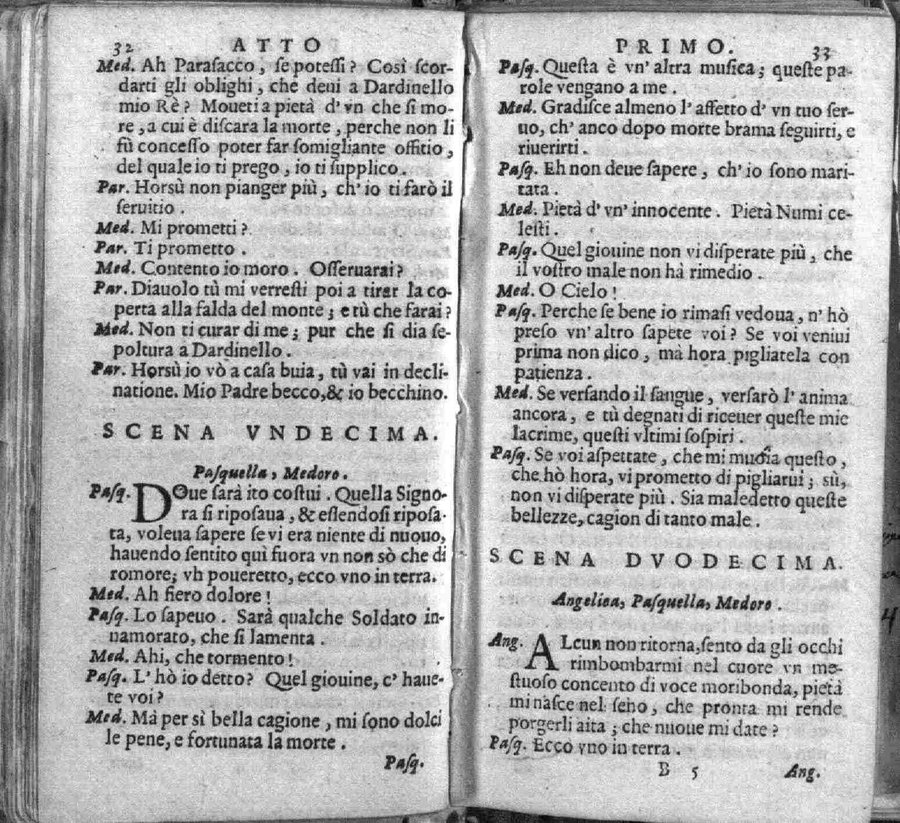 32 ATTO
Med. Ah Parasacco, se potessi? Così scor-
darti gli oblighi, che deui a Dardinello
mio Rè? Moueti a pietà d' vn che si mo-
re, a cui è discara la morte, perche non li
fù concesso poter far somigliante offitio,
del quale io ti prego, io ti supplico.
Par. Horsù non pianger più, ch' io ti farò il
seruitio.
Med. Mi prometti?
Par. Ti prometto.
Med. Contento io moro. Osseruarai?
Par. Diauolo tù mi verresti poi a tirar la co-
perta alla falda del monte; e tù che farai?
Med. Non ti curar di me; pur che si dia se-
poltura a Dardinello.
Par. Horsù io vò a casa buia, tù vai in decli-
natione. Mio Padre becco,& io becchino.
SCENA VNDECIMA.
Pasquella, Medoro.
Pasq. DOue sarà ito costui. Quella Signo-
ra si riposaua, & essendosi riposa-
ta, voleua sapere se vi era niente di nuouo,
hauendo sentito quì fuora vn non sò che di
romore; vh poueretto, ecco vno in terra.
Med. Ah fiero dolore!
Pasq. Lo sapeuo. Sarà qualche Soldato in-
namorato, che si lamenta.
Med. Ahi, che tormento!
Pasq. L' hò io detto? Quel giouine, c' haue-
te voi?
Med. Mà per sì bella cagione, mi sono dolci
le pene, e fortunata la morte.
Pasq.
PRIMO. 33
Pasq. Questa è vn' altra musica; queste pa-
role vengano a me.
Med. Gradisce almeno l' affetto d' vn tuo ser-
uo, ch' anco dopo morte brama seguirti, e
riuerirti.
Pasq. Eh non deue sapere, ch' io sono mari-
tata.
Med. Pietà d' vn' innocente. Pietà Numi ce-
lesti.
Pasq. Quel giouine non vi disperate più, che
il vostro male non hà rimedio.
Med. O Cielo!
Pasq. Perche se bene io rimasi vedoua, n' hò
preso vn' altro sapete voi? Se voi veniui
prima non dico, mà hora pigliatela con
patienza.
Med. Se versando il sangue, versarò l' anima
ancora, e tù degnati di riceuer queste mie
lacrime, questi vltimi sospiri.
Pasq. Se voi aspettate, che mi muoia questo,
che hò hora, vi prometto di pigliarui; sù,
non vi disperate più. Sia maledetto queste
bellezze, cagion di tanto male.
SCENA DVODECIMA.
Angelica, Pasquella, Medoro.
Ang. ALcun non ritorna,sento da gli occhi
rimbombarmi nel cuore vn me-
stuoso concento di voce moribonda, pietà
mi nasce nel seno, che pronta mi rende
porgerli aita; che nuoue mi date?
Pasq. Ecco vno in terra.
B 5 Ang.